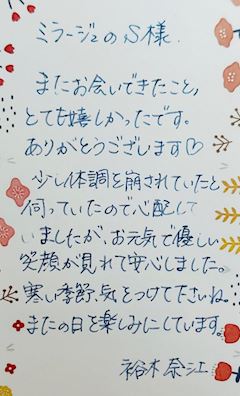 ミラージュのS様.
またお会いできたこと,
とても嬉しかったです。
ありがとうございます♡
少し体調を崩されていたと
伺っていたので心配して
いましたが、お元気で優しい
笑顔が見れて安心しました。
寒い季節、気をつけて下さいね。
またの日を楽しみにしています。
裕木奈江